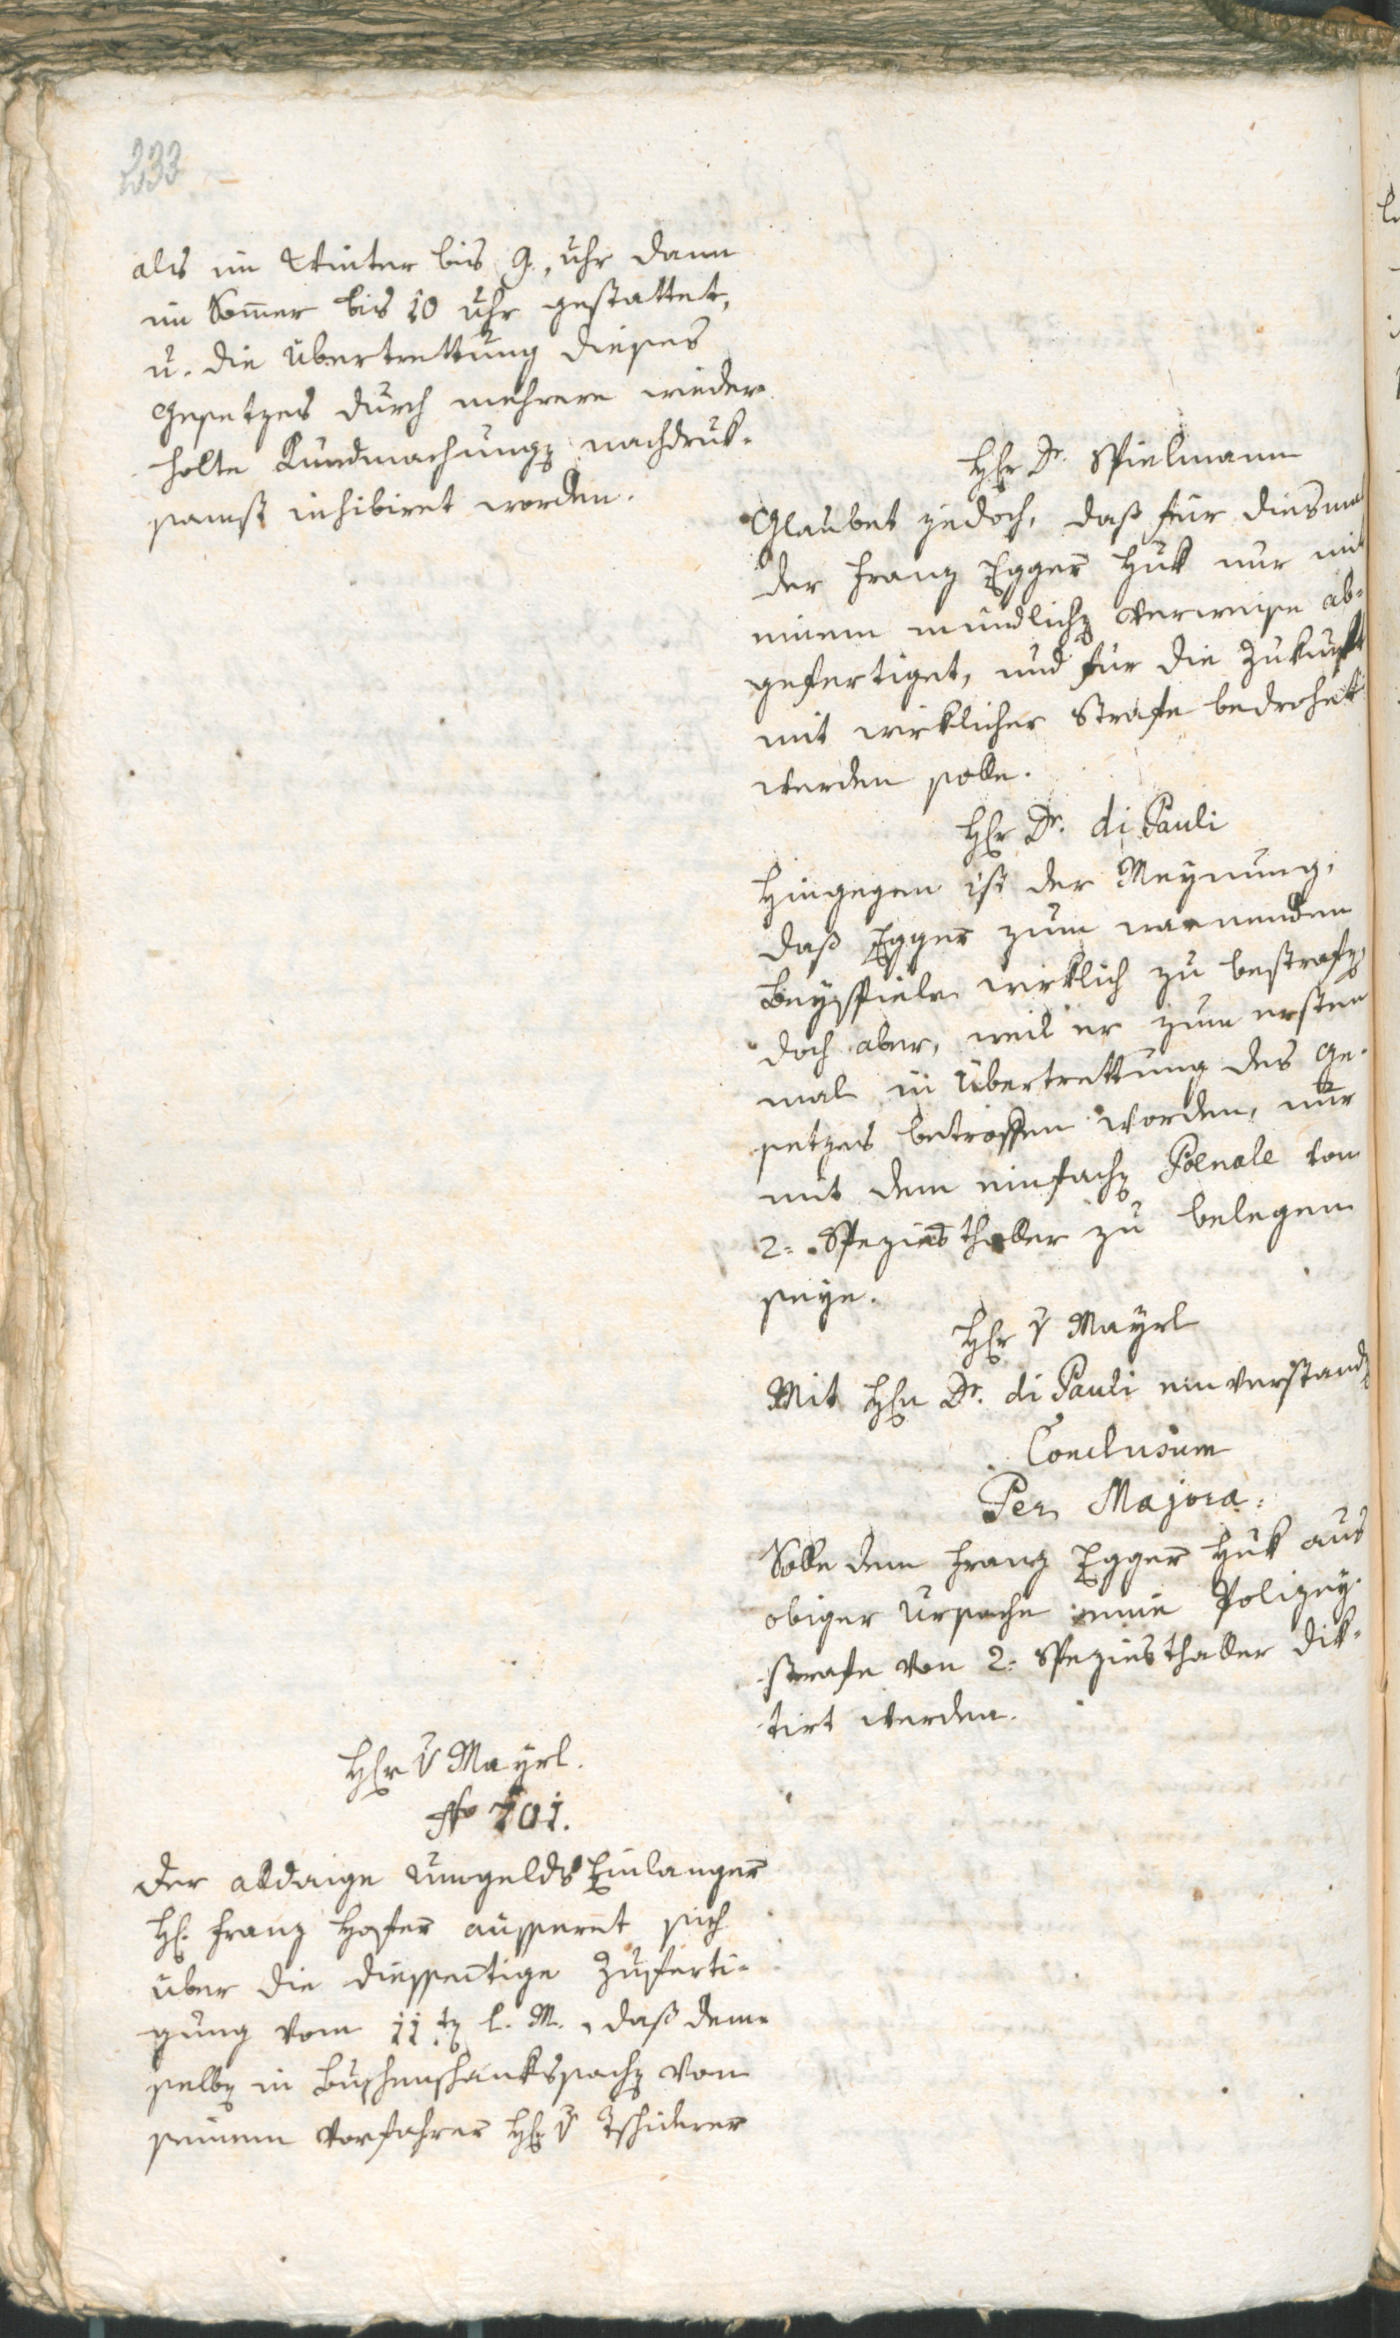 233
als im Winter bis 9. uhr dann
im Som̅er bis 10 uhr gestattet,
u. die übertrettung dieses
Gesetzes durch mehrere wieder-
holte Kundmachung nachdruk-
samst inhibiret worden.
Hr Dr. Spielmann
Glaubet jedoch, daß für diesmal
der Franz Egger Huk nur mit
einem mündlich Verweise ab-
gefertiget, und für die Zukunft
mit wirklicher Strafe bedrohet
werden solle.
Hr Dr. di Pauli
Hingegen ist der Meynung,
daß Egger zum warnenden
Beyspiele wirklich zu bestrafen,
doch aber, weil er zum ersten
mal in Übertrettung des Ge-
setzes betroffen worden, nur
mit dem einfach Poenale von
2. Speziesthaller zu belegen
seye.
Hr v Mayrl
Mit Hrn Dr. di Pauli einverstanden
Conclusum
Per Majora:
Solle dem Franz Egger Huk aus
obiger Ursache eine Polizey-
strafe von 2. Speziesthaller dik-
tirt werden.
Hr v Mayrl.
No 701.
Der alldaige Umgelds Einlanger
H. Franz Hofer äusseret sich
über die diesseitige Zuferti-
gung vom 11ten l. M., daß dem-
selben in Buschenschankssachen von
seinem Vorfahrer Hr v Tschiderer